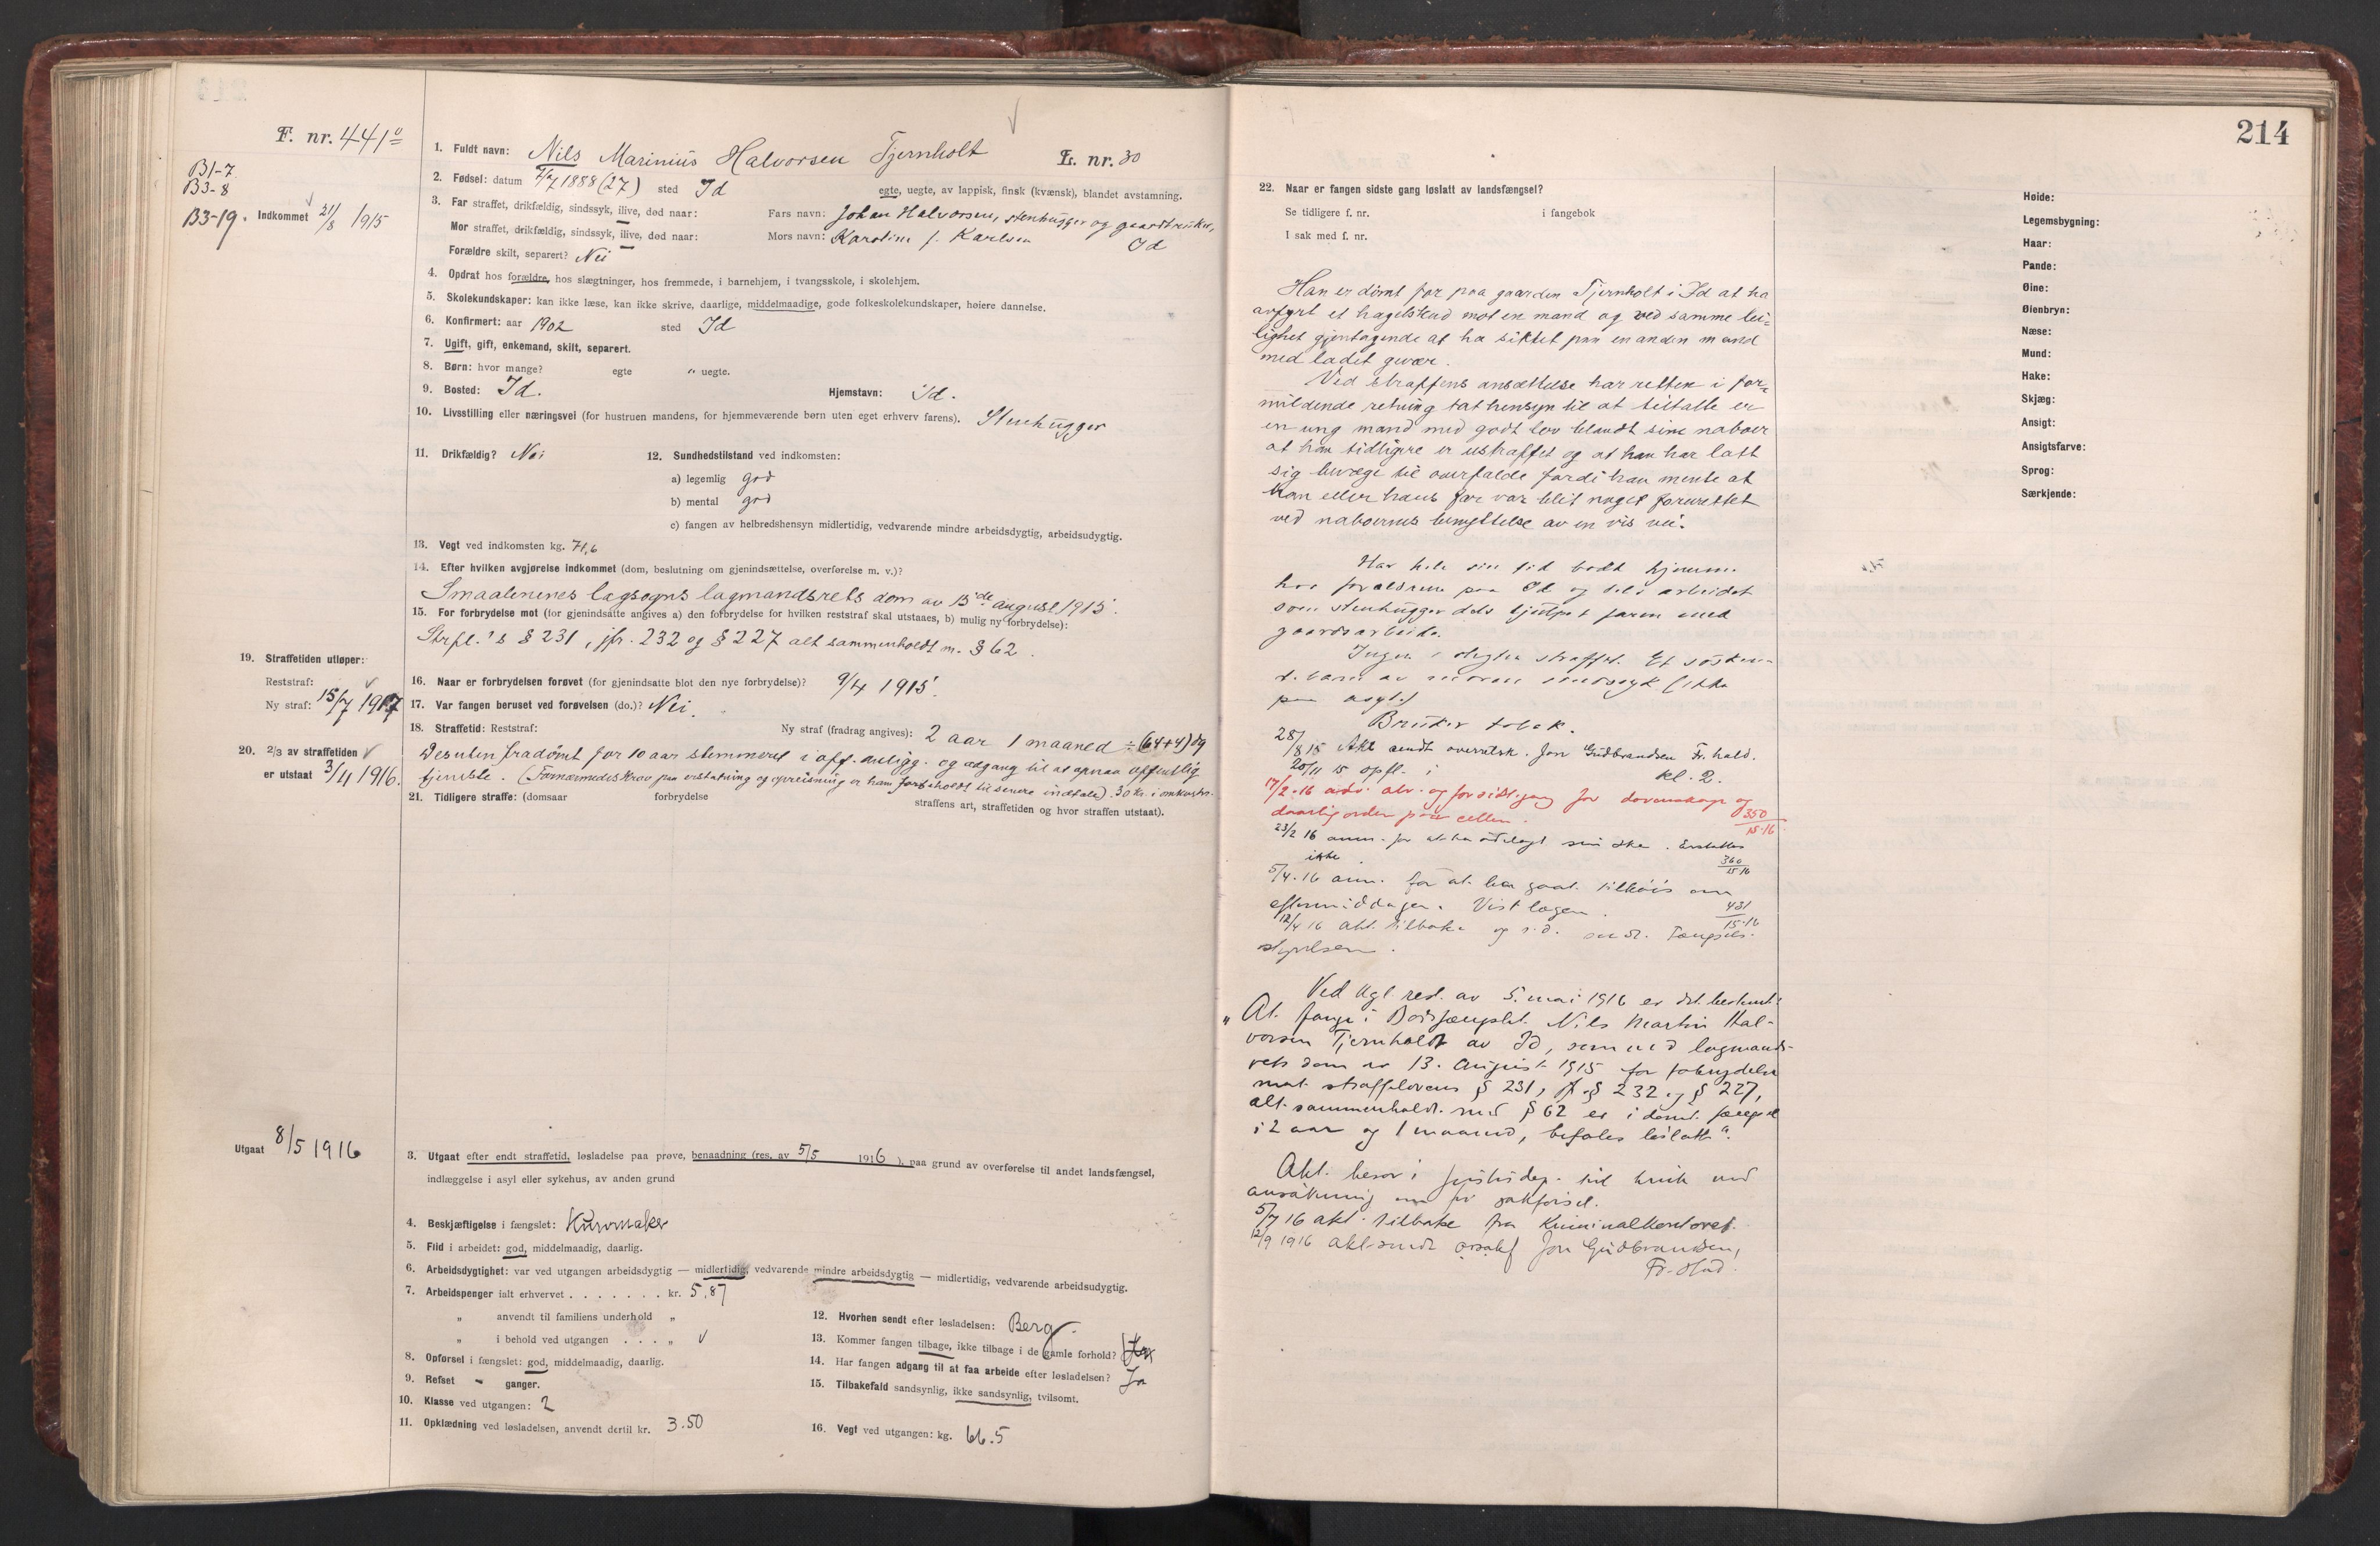 F. nr. 441
B1-7
B3-8
B3-19. Indkommet 21/8 1915
1. Fuldt navn: Nils Marinius Halvorsen Tjernholt L. nr. 30
2. Fødsel: datum 1888 (27) sted Id egte, uegte, av lappisk, finsk (kvænsk), blandet avstamning.
3. Far straffet, drikfældig, sindssyk, ilive, død naar: Fars navn: Johan Halvorsen, stenhugger og gaardbruker,
Mor straffet, drikfældig, sindssyk, ilive, død naar: Mors navn: Karoline f. Karlsen Id
Forældre skilt, separert? Nei
4. Opdrat hos forældre, hos slægtninger, hos fremmede, i barnehjem, i tvangsskole, i skolehjem.
5. Skolekundskaper: kan ikke læse, kan ikke skrive, daarlige, middelmaadige, gode folkeskolekundskaper, høiere dannelse.
6. Konfirmert: aar 1902 sted Id
7. Ugift, gift, enkemand, skilt, separert.
8. Børn: hvor mange? egte " uegte.
9. Bosted: Id. Hjemstavn: Id.
10. Livsstilling eller næringsvei (for hustruen mandens, for hjemmeværende børn uten eget erhverv farens). Stenhugger
11. Drikfældig? Nei 12. Sundhedstilstand ved indkomsten:
a) legemlig god
b) mental god
c) fangen av helbredshensyn midlertidig, vedvarende mindre arbeidsdygtig, arbeidsudygtig.
13. Vegt ved indkomsten kg. 71,6
14. Efter hvilken avgjørelse indkommet (dom, beslutning om gjenindsættelse, overførelse m. v.)?
Smaalenenes lagsogns lagmandsrets dom av 13de august 1915.
15. For forbrydelse mot (for gjenindsatte angives a) den forbrydelse for hvilken reststraf skal utstaaes, b) mulig ny forbrydelse):
Strfl.'s § 231, jfr. 232 og § 227 alt sammenholdt m. § 62.
19. Straffetiden utløper:
Reststraf:
Ny straf: 15/7 1917
16. Naar er forbrydelsen forøvet (for gjenindsatte blot den nye forbrydelse)? 9/4 1915.
17. Var fangen beruset ved forøvelsen (do.)? Nei.
18. Straffetid: Reststraf: Ny straf (fradrag angives): 2 aar 1 maaned ÷ (64+4) dg
20. 2/3 av straffetiden
er utstaat 3/4 1916.
Desuten fradømt for 10 aar stemmeret i off. anligg. og adgang til at opnaa offentlig
tjeneste. (Fornærmedes krav paa erstatning og opreisning er ham forbeholdt til senere indtale). 30 kr. i omkostn.
21. Tidligere straffe: (domsaar forbrydelse straffens art, straffetiden og hvor straffen utstaat).
Utgaat 8/5 1916
3. Utgaat efter endt straffetid, løsladelse paa prøve, benaadning (res. av 5/5 1916), paa grund av overførelse til andet landsfængsel,
indlæggelse i asyl eller sykehus, av anden grund
4. Beskjæftigelse i fængslet: Kurvmaker
5. Flid i arbeidet: god, middelmaadig, daarlig.
6. Arbeidsdygtighet: var ved utgangen arbeidsdygtig — midlertidig, vedvarende mindre arbeidsdygtig — midlertidig, vedvarende arbeidsudygtig.
7. Arbeidspenger ialt erhvervet . . . . . . . kr. 5,87
" anvendt til familiens underhold "
" i behold ved utgangen . . . "
8. Opførsel i fængslet: god, middelmaadig, daarlig.
9. Refset - ganger.
10. Klasse ved utgangen: 2
11. Opklædning ved løsladelsen, anvendt dertil kr. 3.50
12. Hvorhen sendt efter løsladelsen: Berg.
13. Kommer fangen tilbage, ikke tilbage i de gamle forhold?
14. Har fangen adgang til at faa arbeide efter løsladelsen? Ja
15. Tilbakefald sandsynlig, ikke sandsynlig, tvilsomt.
16. Vegt ved utgangen: kg. 66.5
214
22. Naar er fangen sidste gang løslatt av landsfængsel?
Se tidligere f. nr. i fangebok
I sak med f. nr.
Han er dømt for paa gaarden Tjernholt i Id at ha
avfyrt et haglskud mot en mand og ved samme lei-
lighet gjentagende at ha siktet paa en anden mand
med ladet gevær.
Ved straffens ansættelse har retten i for-
mildende retning tat hensyn til at tiltalte er
en ung mand med godt lov blandt sine naboer
at han tidligere er ustraffet og at han har latt
sig bevæge til overfaldet fordi han mente at
han eller hans far var blit noget forurettet
ved naboernes benyttelse av en vis vei.
Har hele sin tid bodt hjemme
hos forældrene paa Id og dels arbeidet
som stenhugger dels hjulpet faren med
gaardsarbeide.
Ingen i slegten straffet. Et søsken-
d. barn av moren sindssyk (ikke
paa asyl.)
Bruker tobak.
28/8 15 Akt sendt overretssk. Jon Gudbrandsen Fr.hald.
20/11 15 opfl. i kl. 2.
17/2 16 adv. alv. og for sidste gang for dovenskap og
daarlig orden paa cellen. 350/15-16
23/2 16 anm. for at ha ødelagt sin ske. Erstattes
ikke 360/15-16
5/4-16 anm. for at ha gaat tilkøis om
eftermiddagen. Vist lægen. 431/15-16
12/4 16 akt. tilbake og s.d. sendt Fængsels-
styrelsen.
Ved kgl. res. av 5. mai 1916 er det bestemt:
"At fange i Botsfængslet Nils Martin Hal-
vorsen Tjernholt av Id, som ved lagmands-
rets dom av 13. august 1915 for forbrydelse
mot straffelovens § 231, jf. § 232 og § 227,
alt sammenholdt med § 62 er idømt fængsel
i 2 aar og 1 maaned, befales løslatt".
Akt. beror i justisdep. til bruk ved
ansøkning om sakførsel.
5/7 16 akt. tilbake fra Kriminalkontoret.
12/9 1916 akt sendt orsakf Jon Gudbrandsen,
Fr.hald.
Høide:
Legemsbygning:
Haar:
Pande:
Øine:
Øienbryn:
Næse:
Mund:
Hake:
Skjæg:
Ansigt:
Ansigtsfarve:
Sprog:
Særkjende: